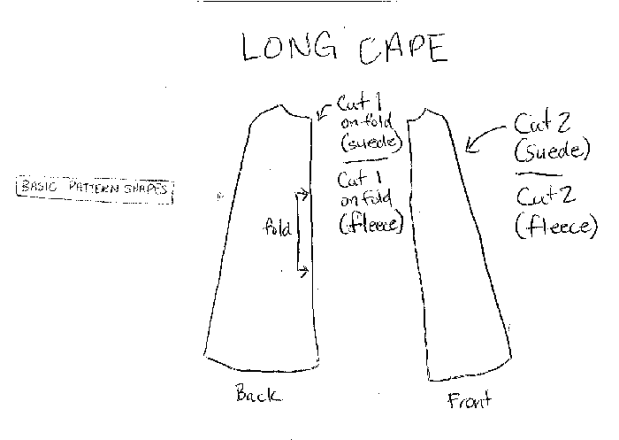 LONG CAPE
Cut 1
on fold
(suede)
Cut 1
on fold
(fleece)
Cut 2
(suede)
Cut 2
(fleece)
BASIC PATTERN SHAPES
fold
Back
Front